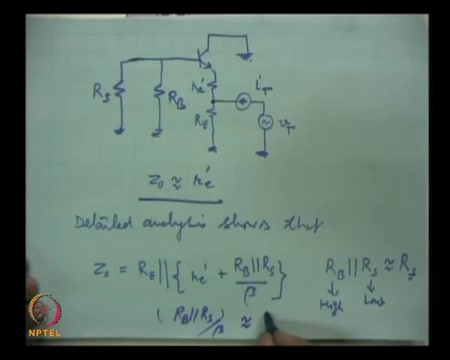 R_S
R_B
r_e'
R_E
i_T
v_T
Z_0 ≈ r_e'
Detailed analysis shows that
Z_0 = R_E || { r_e' + R_B||R_S / β }
R_B || R_S ≈ R_S
High
Low
(R_B||R_S)/β ≈
NPTEL